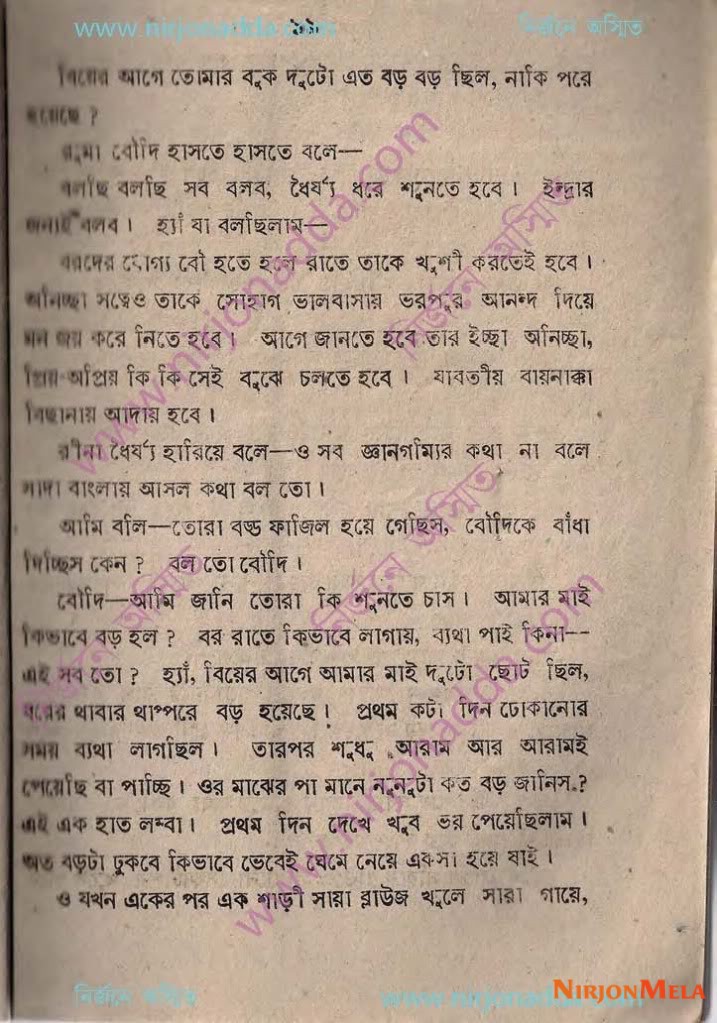 www.nirjonadda.com নির্জনে অস্মিত
বিয়ের আগে তোমার বুক দুটো এত বড় বড় ছিল, নাকি পরে
হয়েছে ?
বৌদি হাসতে হাসতে বলে—
বলছি বলছি সব বলব, ধৈর্য্য ধরে শুনতে হবে। ইন্দ্রার
বলব। হ্যাঁ যা বলছিলাম—
বরদের যোগ্য বৌ হতে হলে রাতে তাকে খুশী করতেই হবে।
অনিচ্ছা সত্বেও তাকে সোহাগ ভালবাসায় ভরপুর আনন্দ দিয়ে
মন জয় করে নিতে হবে। আগে জানতে হবে তার ইচ্ছা অনিচ্ছা,
প্রিয় অপ্রিয় কি কি সেই বুঝে চলতে হবে। যাবতীয় বায়নাক্কা
বিছানায় আদায় হবে।
রীনা ধৈর্য্য হারিয়ে বলে—ও সব জ্ঞানগম্যির কথা না বলে
সাদা বাংলায় আসল কথা বল তো।
আমি বলি—তোরা বড্ড ফাজিল হয়ে গেছিস, বৌদিকে বাঁধা
দিচ্ছিস কেন ? বল তো বৌদি।
বৌদি—আমি জানি তোরা কি শুনতে চাস। আমার মাই
কিভাবে বড় হল ? বর রাতে কিভাবে লাগায়, ব্যথা পাই কিনা--
এই সব তো ? হ্যাঁ, বিয়ের আগে আমার মাই দুটো ছোট ছিল,
বরের থাবার থাপ্পরে বড় হয়েছে। প্রথম কটা দিন ঢোকানোর
সময় ব্যথা লাগছিল। তারপর শুধু আরাম আর আরামই
পেয়েছি বা পাচ্ছি। ওর মাঝের পা মানে নুনুটা কত বড় জানিস ?
এই এক হাত লম্বা। প্রথম দিন দেখে খুব ভয় পেয়েছিলাম।
অত বড়টা ঢুকবে কিভাবে ভেবেই ঘেমে নেয়ে একসা হয়ে যাই।
ও যখন একের পর এক শাড়ী সায়া ব্লাউজ খুলে সারা গায়ে,
নির্জনে অস্মিত www.nirjonadda.com
NIRJONMELA